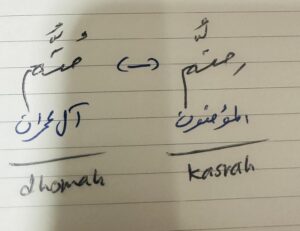 مِتُّم (—) مُتُّم
المؤمنون آل عمران
kasrah dhomah